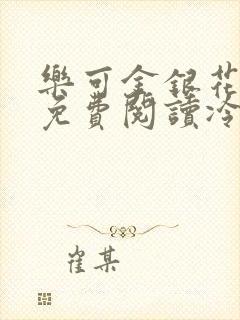 樂可金銀花
免費閱讀冷
崔某